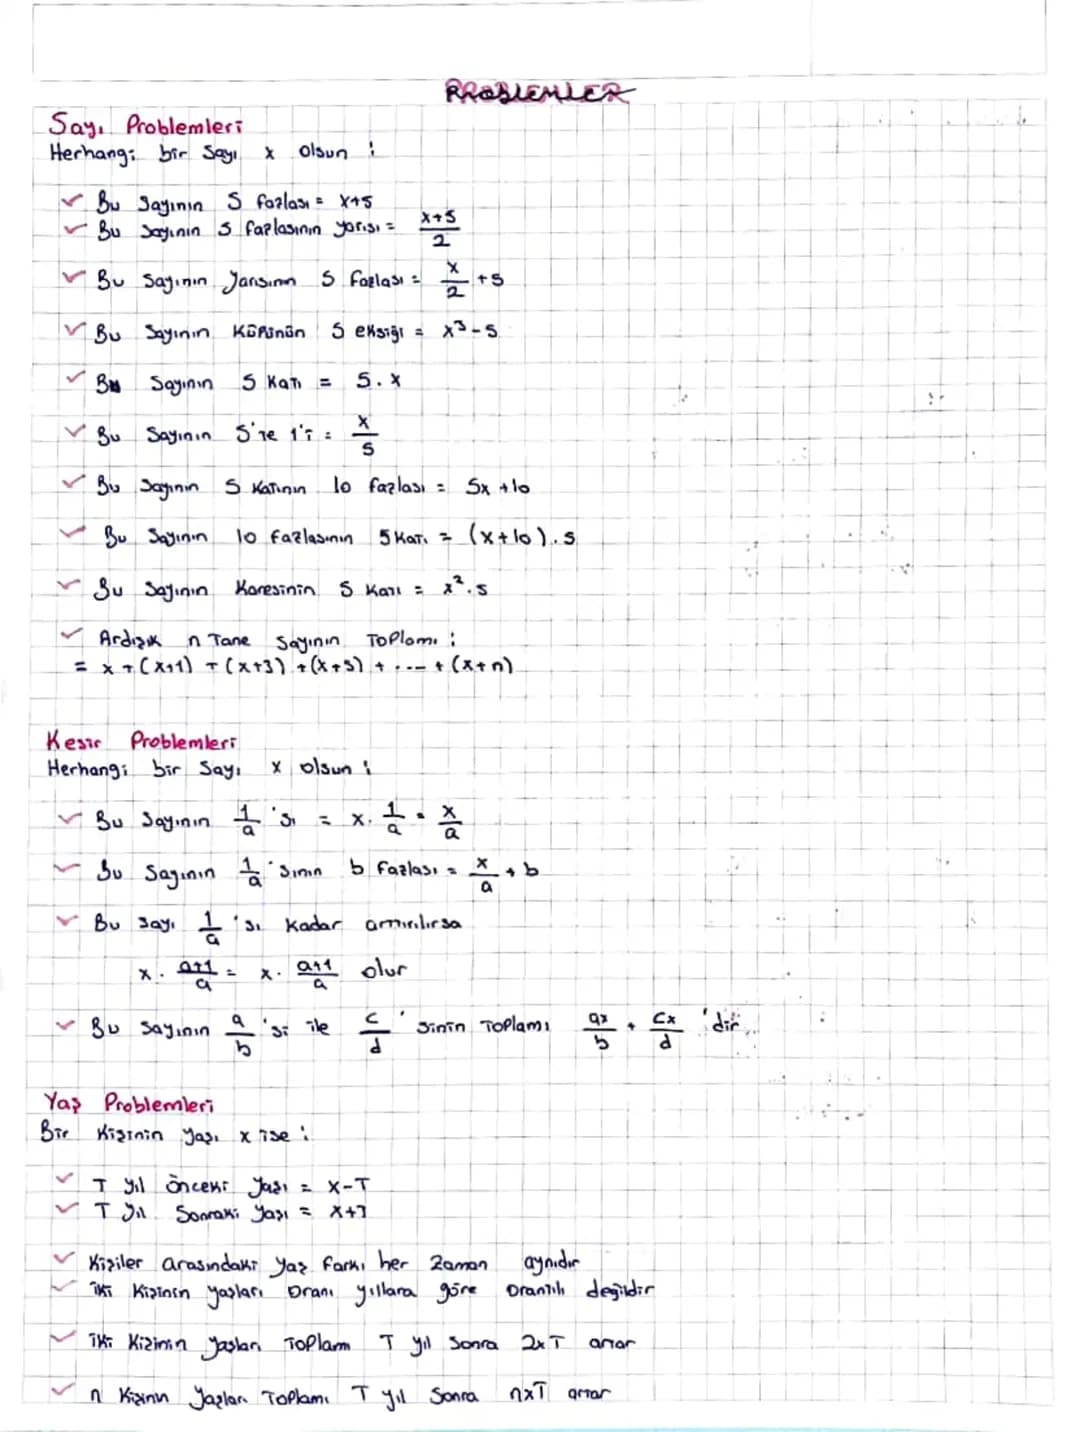 PROBLEMLER
Sayı Problemleri
Herhangi bir sayı x olsun :
Bu sayının 5 fazlası = x+5
Bu sayının 5 fazlasının yarısı = (x+5)/2
Bu sayının yarısının 5 fazlası = x/2 +5
Bu sayının küpünün 5 eksiği = x³-5
Bu sayının 5 katı = 5.x
Bu sayının 5'te 1'i = x/5
Bu sayının 5 katının 10 fazlası = 5x+10
Bu sayının 10 fazlasının 5 katı = (x+10).5
Bu sayının karesinin 5 katı = x².5
Ardışık n tane sayının toplamı :
= x+(x+1)+(x+3)+(x+5)+....+(x+n)
Kesir Problemleri
Herhangi bir sayı x olsun :
Bu sayının 1/a 'sı = x. 1/a = x/a
Bu sayının 1/a 'sının b fazlası = x/a + b
Bu sayı 1/a 'sı kadar artırılırsa
x. (a+1)/a = x. (a+1)/a olur
Bu sayının a/b 'si ile c/d ' sinin toplamı ax/b + cx/d 'dir
Yaş Problemleri
Bir kişinin yaşı x ise :
T yıl önceki yaşı = x-T
T yıl sonraki yaşı = x+T
Kişiler arasındaki yaş farkı her zaman aynıdır
iki kişinin yaşları oranı yıllara göre orantılı değildir
iki kişinin yaşları toplamı T yıl sonra 2xT artar
n kişinin yaşları toplamı T yıl sonra nxT artar